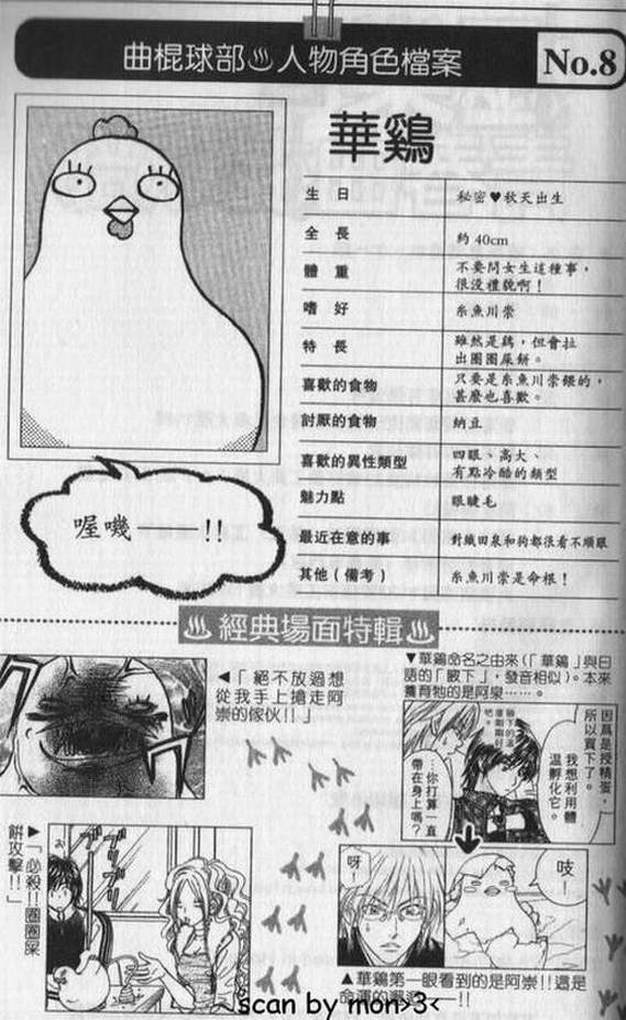 曲棍球部♨人物角色檔案
No.8
華鷄
生日 秘密♥秋天出生
全長 約 40cm
體重 不要問女生這種事，
很沒禮貌啊！
嗜好 糸魚川崇
特長 雖然是鷄，但會拉
出圈圈屎餅。
喜歡的食物 只要是糸魚川崇餵的，
甚麼也喜歡。
討厭的食物 納豆
喜歡的異性類型 四眼、高大、
有點冷酷的類型
魅力點 眼睫毛
最近在意的事 對織田泉和狗都很看不順眼
其他（備考） 糸魚川崇是命根！
喔嘰——!!
♨經典場面特輯♨
◀「絕不放過想
從我手上搶走阿
崇的傢伙!!」
▼華鷄命名之由來（「華鷄」與日
語的「腋下」，發音相似）。本來
養育牠的是阿泉……。
因爲是授精蛋，
所以買下了。
我想利用體
溫孵化它。
腋下的溫
度剛剛好
吧。
…你打算一直
帶在身上嗎？
▶「必殺!!圈圈屎
餅攻擊!!」
ブリブリ
呀！
吱！
▲華鷄第一眼看到的是阿崇!!這是
命運的邂逅——!!
scan by mon>3<